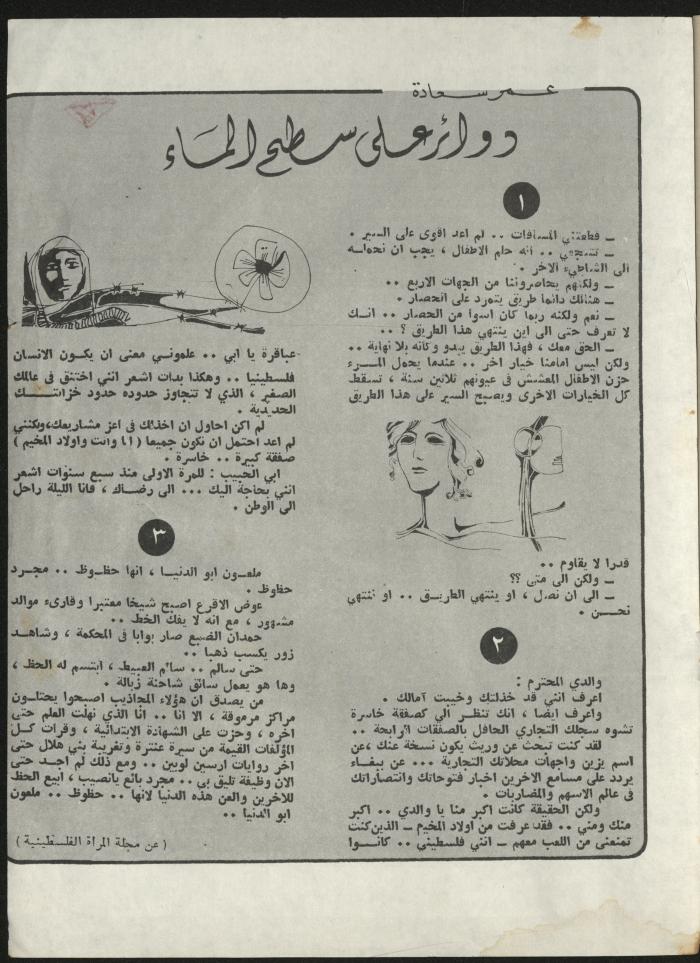 عمر سعادة
دوائر على سطح الماء
١
ــ قطعتني المسافات .. لم اعد اقوى على السير .
ــ تشجعي .. انه حلم الاطفال ، يجب ان نحمله
الى الشاطىء الاخر .
ــ ولكنهم يحاصروننا من الجهات الاربع ..
ــ هنالك دائما طريق يتمرد على الحصار .
ــ نعم ولكنه ربما كان اسوا من الحصار .. انك
لا تعرف حتى الى اين ينتهي هذا الطريق ؟ ..
ــ الحق معك ، فهذا الطريق يبدو وكأنه بلا نهاية ..
ولكن ليس امامنا خيار آخر .. عندما يحمل المرء
حزن الاطفال المعشش في عيونهم ثلاثين سنة ، تسقط
كل الخيارات الاخرى ويصبح السير على هذا الطريق
قدرا لا يقاوم ..
ــ ولكن الى متى ؟؟
ــ الى ان نصل ، او ينتهي الطريق .. او ننتهي
نحن .
٢
والدي المحترم :
اعرف انني قد خذلتك وخيبت آمالك .
واعرف ايضا ، انك تنظر الي كصفقة خاسرة
تشوه سجلك التجاري الحافل بالصفقات الرابحة ..
لقد كنت تبحث عن وريث يكون نسخة عنك ،عن
اسم يزين واجهات محلاتك التجارية ... عن ببغاء
يردد على مسامع الآخرين اخبار فتوحاتك وانتصاراتك
في عالم الاسهم والمضاربات .
ولكن الحقيقة كانت اكبر منا يا والدي .. اكبر
منك ومني .. فقد عرفت من اولاد المخيم ــ الذين كنت
تمنعني من اللعب معهم ــ انني فلسطيني .. كانوا
عباقرة يا ابي .. علموني معنى ان يكون الانسان
فلسطينيا .. وهكذا بدات اشعر انني اختنق في عالمك
الصغير ، الذي لا تتجاوز حدوده حدود خزانتك
الحديدية .
لم اكن احاول ان اخذلك في اعز مشاريعك،ولكنني
لم اعد احتمل ان نكون جميعا ( انا وانت واولاد المخيم )
صفقة كبيرة .. خاسرة .
ابي الحبيب : للمرة الاولى منذ سبع سنوات اشعر
انني بحاجة اليك ... الى رضاك ، فانا الليلة راحل
الى الوطن .
٣
ملعون ابو الدنيا ، انها حظوظ .. مجرد
حظوظ .
عوض الاقرع اصبح شيخا معتبرا وقارىء موالد
مشهور ، مع انه لا يفك الخط ..
حمدان الضبع صار بوابا في المحكمة ، وشاهد
زور يكسب ذهبا ..
حتى سالم .. سالم العبيط ، ابتسم له الحظ ،
وها هو يعمل سائق شاحنة زبالة .
من يصدق ان هؤلاء المجاذيب اصبحوا يحتلون
مراكز مرموقة ، الا انا .. انا الذي نهلت العلم حتى
آخره ، وحزت على الشهادة الابتدائية ، وقرات كل
المؤلفات القيمة من سيرة عنترة وتغريبة بني هلال حتى
آخر روايات ارسين لوبين .. ومع ذلك لم اجد حتى
الآن وظيفة تليق بي .. مجرد بائع يانصيب ، ابيع الحظ
للآخرين والعن هذه الدنيا لانها .. حظوظ .. ملعون
ابو الدنيا ..
( عن مجلة المراة الفلسطينية )